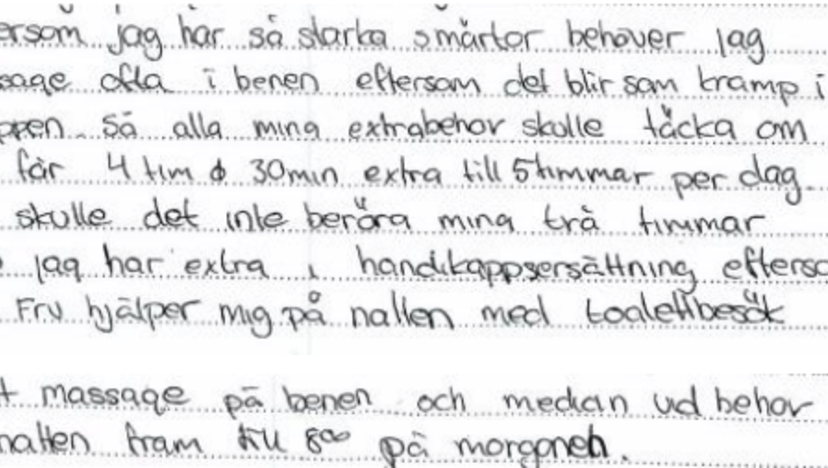 ersom jag har så starka smärtor behöver jag
sage ofta i benen eftersom det blir som kramp i
ppen. Så alla mina extrabehov skulle täcka om
får 4 tim & 30min extra till 5timmar per dag.
skulle det inte beröra mina två timmar
jag har extra i handikappsersättning efterso
Fru hjälper mig på natten med toalettbesök
t massage på benen och medicin vid behov
natten fram till 8⁰⁰ på morgonen.